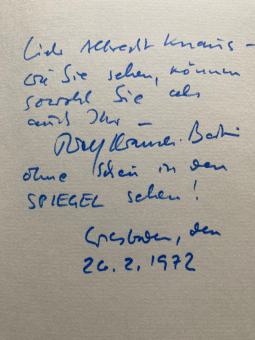 Lieber Albrecht Knaus –
wie Sie sehen, können
sowohl Sie als
auch Ihr –
Rolf Krämer-Bad
ohne Scheu in den
SPIEGEL sehen!
Wiesbaden, den
26.2.1972